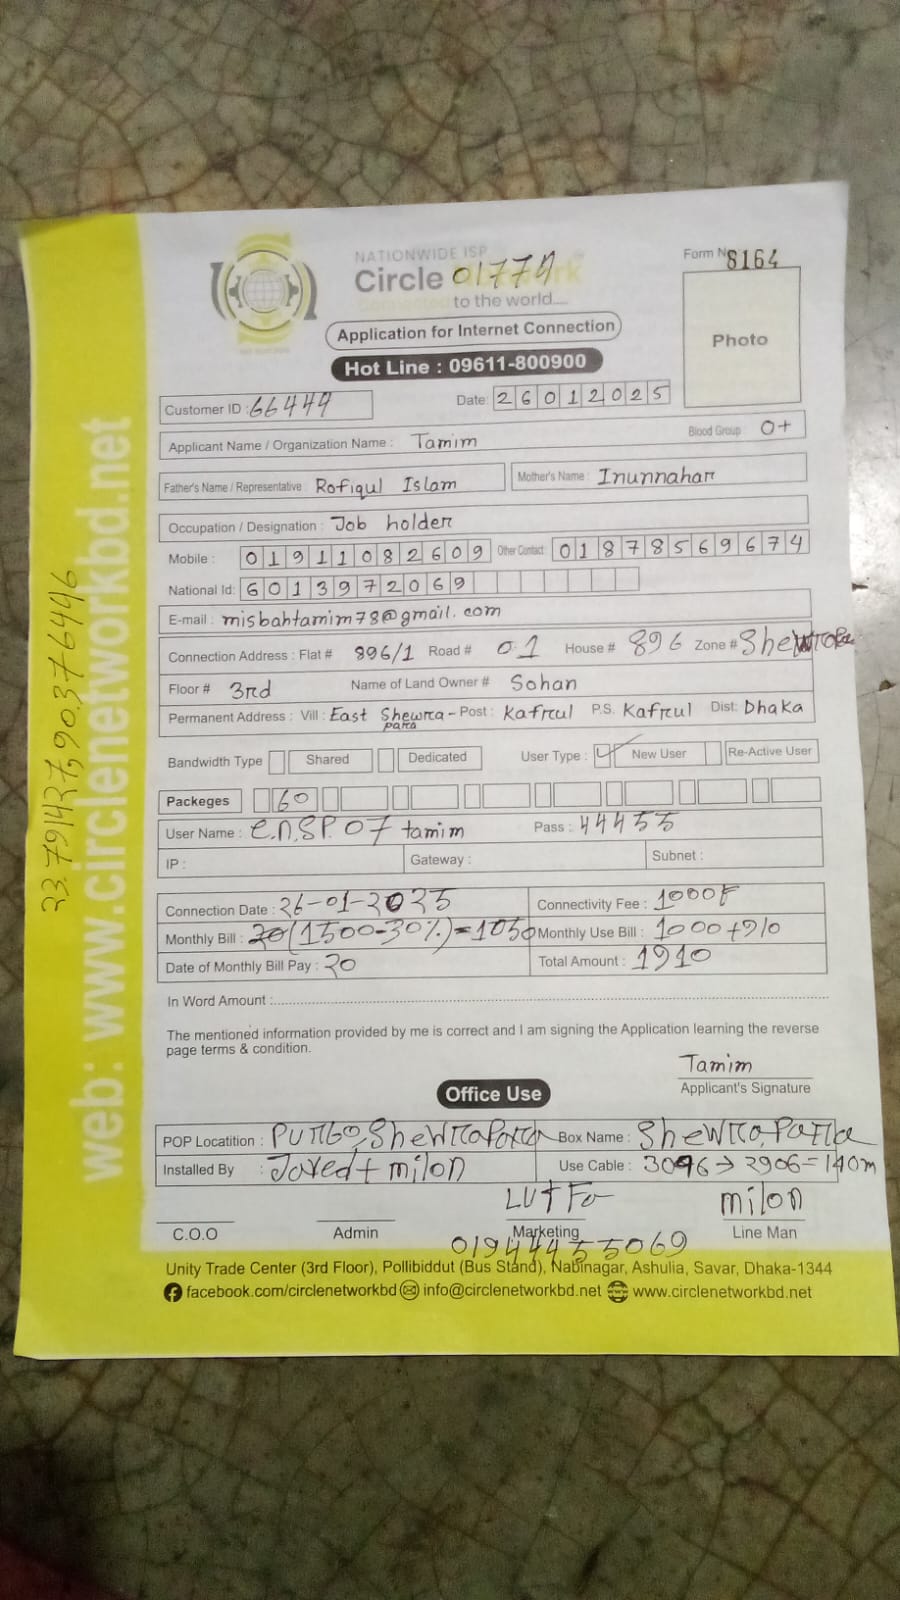 NATIONWIDE ISP
Circle Network
01774
Connected to the world....
Form No 8164
Photo
Application for Internet Connection
Hot Line : 09611-800900
Customer ID : 66449
Date: 26012025
Applicant Name / Organization Name : Tamim
Blood Group O+
Father's Name / Representative Rofiqul Islam
Mother's Name : Inunnahar
Occupation / Designation : Job holder
Mobile : 01911082609 Other Contact : 01878569674
National Id: 6013972069
E-mail : misbahtamim78@gmail.com
Connection Address : Flat # 896/1 Road # 01 House # 896 Zone #
Floor # 3rd Name of Land Owner # Sohan
Permanent Address : Vill : East Shewra para - Post : Kafrul P.S. Kafrul Dist: Dhaka
Bandwidth Type Shared Dedicated User Type : New User Re-Active User
Packeges 60
User Name : C.N.SP.07 tamim Pass : 44455
IP : Gateway : Subnet :
Connection Date : 26-01-2025 Connectivity Fee : 1000
Monthly Bill : (1500-30%)=1050 Monthly Use Bill : 1000+910
Date of Monthly Bill Pay : 20 Total Amount : 1910
In Word Amount :
The mentioned information provided by me is correct and I am signing the Application learning the reverse
page terms & condition.
Tamim
Applicant's Signature
Office Use
POP Locatition : Box Name :
Installed By : Javed + milon Use Cable : 3046→2906=140m
milon
C.O.O Admin Marketing Line Man
01944455069
Unity Trade Center (3rd Floor), Pollibiddut (Bus Stand), Nabinagar, Ashulia, Savar, Dhaka-1344
facebook.com/circlenetworkbd info@circlenetworkbd.net www.circlenetworkbd.net
web: www.circlenetworkbd.net
23.791427,90.376446